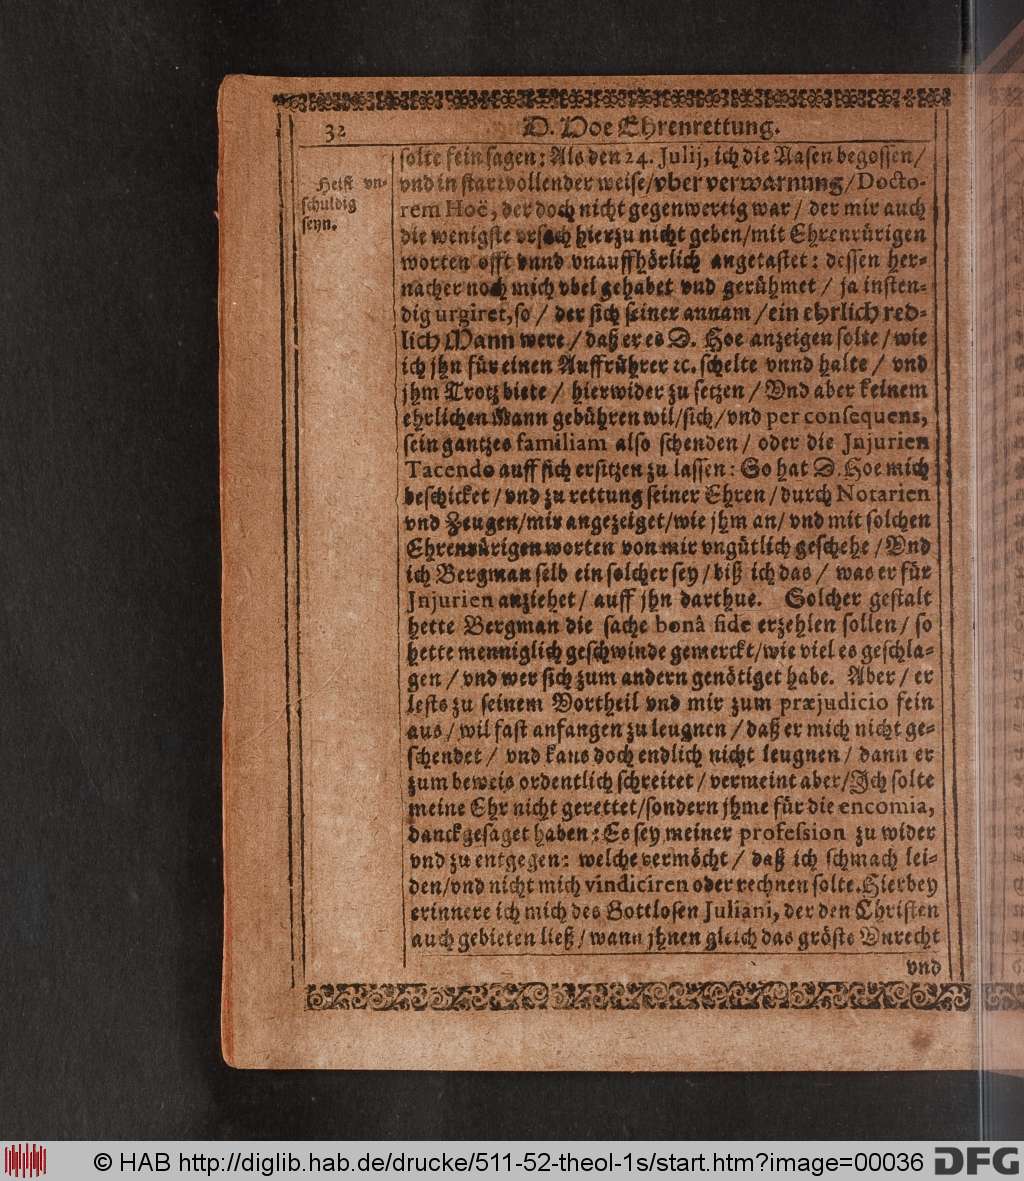 32
D. Hoe Ehrenrettung.
Heist vn-
schuldig
seyn.
solte fein sagen: Als den 24. Julij, ich die Nasen begossen/
vnd in starwollender weise/vber verwarnung/Docto-
rem Hoë, der doch nicht gegenwertig war/ der mir auch
die wenigste vrsach hierzu nicht geben/mit Ehrenrürigen
worten offt vnnd vnauffhörlich angetastet: dessen her-
nacher noch mich vbel gehabet vnd gerühmet/ ja insten-
dig urgiret, so/ der sich seiner annam/ein ehrlich red-
lich Mann were/ daß er es D. Hoe anzeigen solte/wie
ich jhn für einen Auffrührer ꝛc. schelte vnnd halte/ vnd
jhm Trotz biete/ hierwider zu setzen/ Vnd aber keinem
ehrlichen Mann gebühren wil/sich/vnd per consequens,
sein gantzes familiam also schenden/ oder die Jnjurien
Tacendo auff sich ersitzen zu lassen: So hat D. Hoe mich
beschicket/vnd zu rettung seiner Ehren/durch Notarien
vnd Zeugen/mir angezeiget/wie jhm an/ vnd mit solchen
Ehrenrürigen worten von mir vngütlich geschehe/Vnd
ich Bergman selb ein solcher sey/biß ich das/ was er für
Jnjurien anziehet/ auff jhn darthue. Solcher gestalt
hette Bergman die sache bonâ fide erzehlen sollen/ so
hette menniglich geschwinde gemerckt/wie viel es geschla-
gen/ vnd wer sich zum andern genötiget habe. Aber/ er
lests zu seinem Vortheil vnd mir zum præjudicio fein
aus/ wil fast anfangen zu leugnen/ daß er mich nicht ge-
schendet/ vnd kans doch endlich nicht leugnen/ dann er
zum beweis ordentlich schreitet/vermeint aber/Jch solte
meine Ehr nicht gerettet/sondern jhme für die encomia,
danckgesaget haben: Es sey meiner profession zu wider
vnd zu entgegen: welche vermöcht/ daß ich schmach lei-
den/vnd nicht mich vindiciren oder rechnen solte. Hierbey
erinnere ich mich des Gottlosen Juliani, der den Christen
auch gebieten ließ/wann jhnen gleich das gröste Vnrecht
vnd
© HAB http://diglib.hab.de/drucke/511-52-theol-1s/start.htm?image=00036
DFG